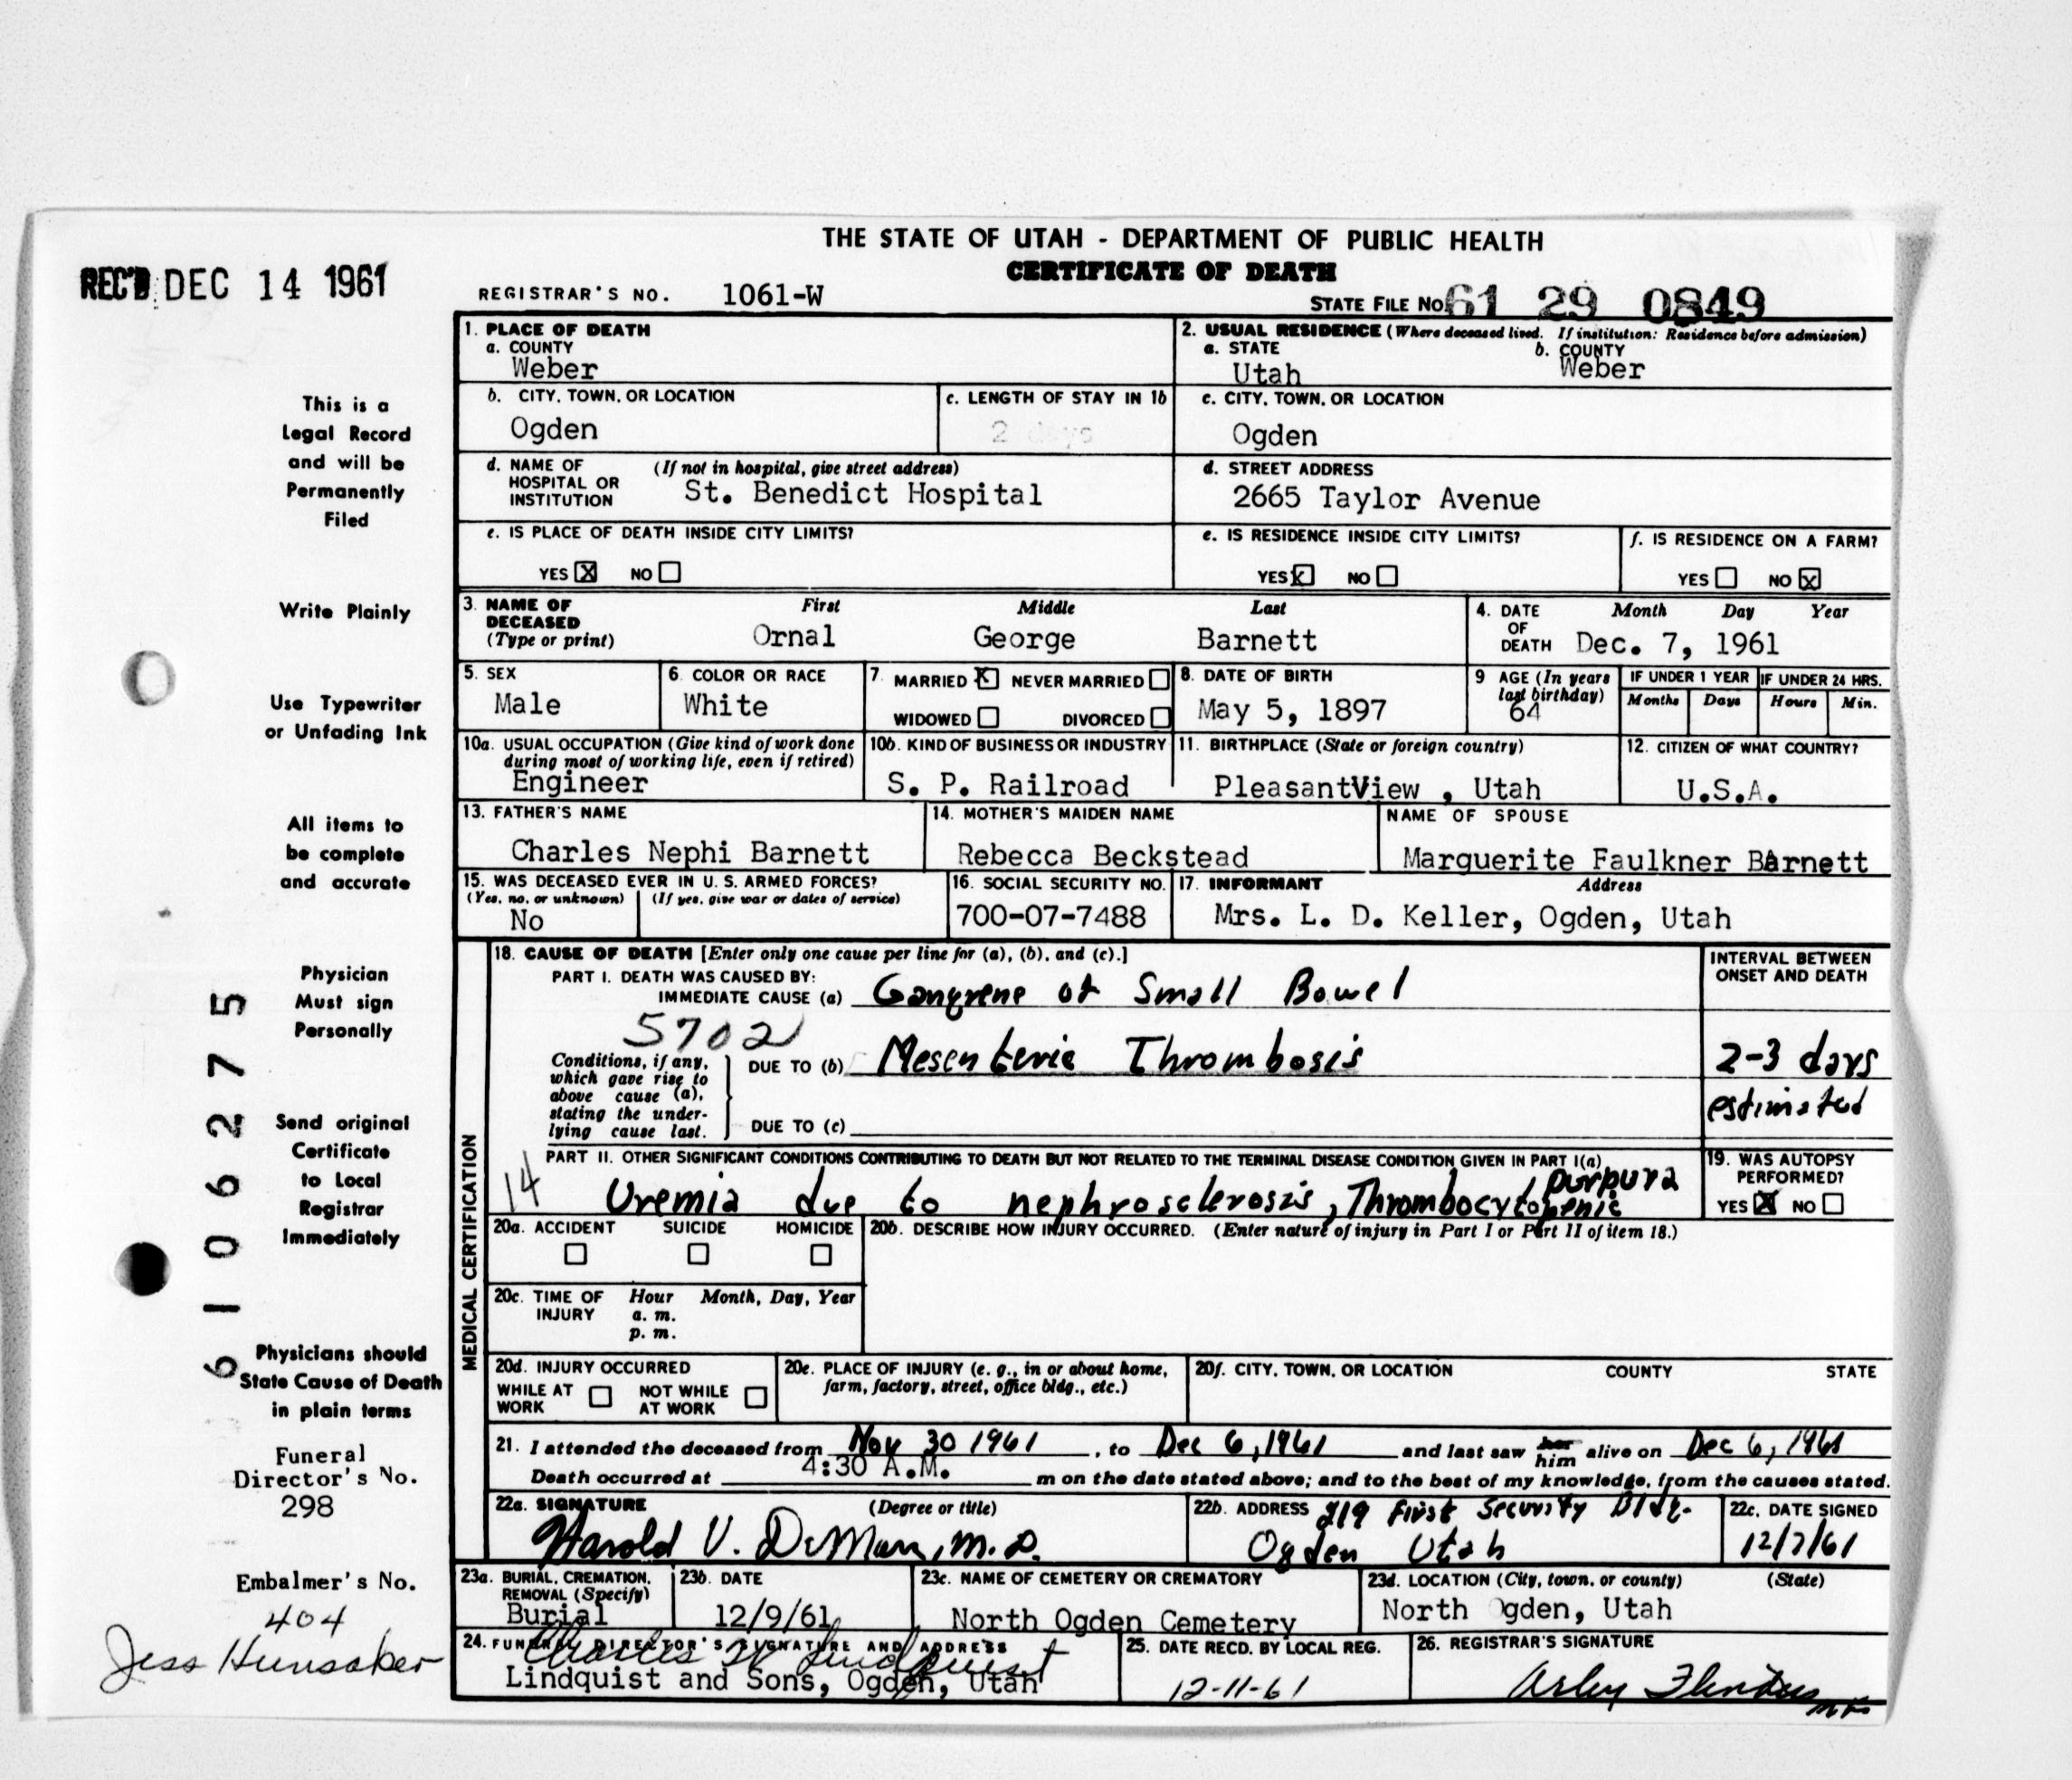 THE STATE OF UTAH - DEPARTMENT OF PUBLIC HEALTH
CERTIFICATE OF DEATH
REC'D DEC 14 1961
REGISTRAR'S NO. 1061-W
STATE FILE No 61 29 0849
1. PLACE OF DEATH
a. COUNTY
Weber
2. USUAL RESIDENCE (Where deceased lived. If institution: Residence before admission)
a. STATE b. COUNTY
Utah Weber
b. CITY, TOWN, OR LOCATION
Ogden
c. LENGTH OF STAY IN 1b
2 days
c. CITY, TOWN, OR LOCATION
Ogden
d. NAME OF HOSPITAL OR INSTITUTION (If not in hospital, give street address)
St. Benedict Hospital
d. STREET ADDRESS
2665 Taylor Avenue
e. IS PLACE OF DEATH INSIDE CITY LIMITS?
YES X NO
e. IS RESIDENCE INSIDE CITY LIMITS?
YES X NO
f. IS RESIDENCE ON A FARM?
YES NO X
3. NAME OF DECEASED (Type or print)
First Middle Last
Ornal George Barnett
4. DATE OF DEATH Month Day Year
Dec. 7, 1961
5. SEX
Male
6. COLOR OR RACE
White
7. MARRIED X NEVER MARRIED
WIDOWED DIVORCED
8. DATE OF BIRTH
May 5, 1897
9 AGE (In years last birthday)
64
IF UNDER 1 YEAR IF UNDER 24 HRS.
Months Days Hours Min.
10a. USUAL OCCUPATION (Give kind of work done during most of working life, even if retired)
Engineer
10b. KIND OF BUSINESS OR INDUSTRY
S. P. Railroad
11. BIRTHPLACE (State or foreign country)
PleasantView , Utah
12. CITIZEN OF WHAT COUNTRY?
U.S.A.
13. FATHER'S NAME
Charles Nephi Barnett
14. MOTHER'S MAIDEN NAME
Rebecca Beckstead
NAME OF SPOUSE
Marguerite Faulkner Barnett
15. WAS DECEASED EVER IN U. S. ARMED FORCES?
(Yes, no, or unknown) (If yes, give war or dates of service)
No
16. SOCIAL SECURITY NO.
700-07-7488
17. INFORMANT Address
Mrs. L. D. Keller, Ogden, Utah
MEDICAL CERTIFICATION
18. CAUSE OF DEATH [Enter only one cause per line for (a), (b), and (c).]
PART I. DEATH WAS CAUSED BY:
IMMEDIATE CAUSE (a) Gangrene of Small Bowel
5702
Conditions, if any, which gave rise to above cause (a), stating the underlying cause last.
DUE TO (b) Mesenteric Thrombosis
DUE TO (c)
INTERVAL BETWEEN ONSET AND DEATH
2-3 days
estimated
PART II. OTHER SIGNIFICANT CONDITIONS CONTRIBUTING TO DEATH BUT NOT RELATED TO THE TERMINAL DISEASE CONDITION GIVEN IN PART I(a)
14 Uremia due to nephrosclerosis, Thrombocytopenic purpura
19. WAS AUTOPSY PERFORMED?
YES X NO
20a. ACCIDENT SUICIDE HOMICIDE
20b. DESCRIBE HOW INJURY OCCURRED. (Enter nature of injury in Part I or Part II of item 18.)
20c. TIME OF INJURY Hour Month, Day, Year
a. m.
p. m.
20d. INJURY OCCURRED
WHILE AT WORK NOT WHILE AT WORK
20e. PLACE OF INJURY (e. g., in or about home, farm, factory, street, office bldg., etc.)
20f. CITY, TOWN, OR LOCATION COUNTY STATE
21. I attended the deceased from Nov 30 1961, to Dec 6, 1961 and last saw her him alive on Dec 6, 1961
Death occurred at 4:30 A.M. m on the date stated above; and to the best of my knowledge, from the causes stated.
22a. SIGNATURE (Degree or title)
Harold V. DeMars, M.D.
22b. ADDRESS 219 First Security Bldg.
Ogden Utah
22c. DATE SIGNED
12/7/61
23a. BURIAL, CREMATION, REMOVAL (Specify)
Burial
23b. DATE
12/9/61
23c. NAME OF CEMETERY OR CREMATORY
North Ogden Cemetery
23d. LOCATION (City, town, or county) (State)
North Ogden, Utah
24. FUNERAL DIRECTOR'S SIGNATURE AND ADDRESS
Charles W Lindquist
Lindquist and Sons, Ogden, Utah
25. DATE RECD. BY LOCAL REG.
12-11-61
26. REGISTRAR'S SIGNATURE
This is a
Legal Record
and will be
Permanently
Filed
Write Plainly
Use Typewriter
or Unfading Ink
All items to
be complete
and accurate
Physician
Must sign
Personally
Send original
Certificate
to Local
Registrar
Immediately
Physicians should
State Cause of Death
in plain terms
6106275
Funeral
Director's No.
298
Embalmer's No.
404
Jess Hunsaker